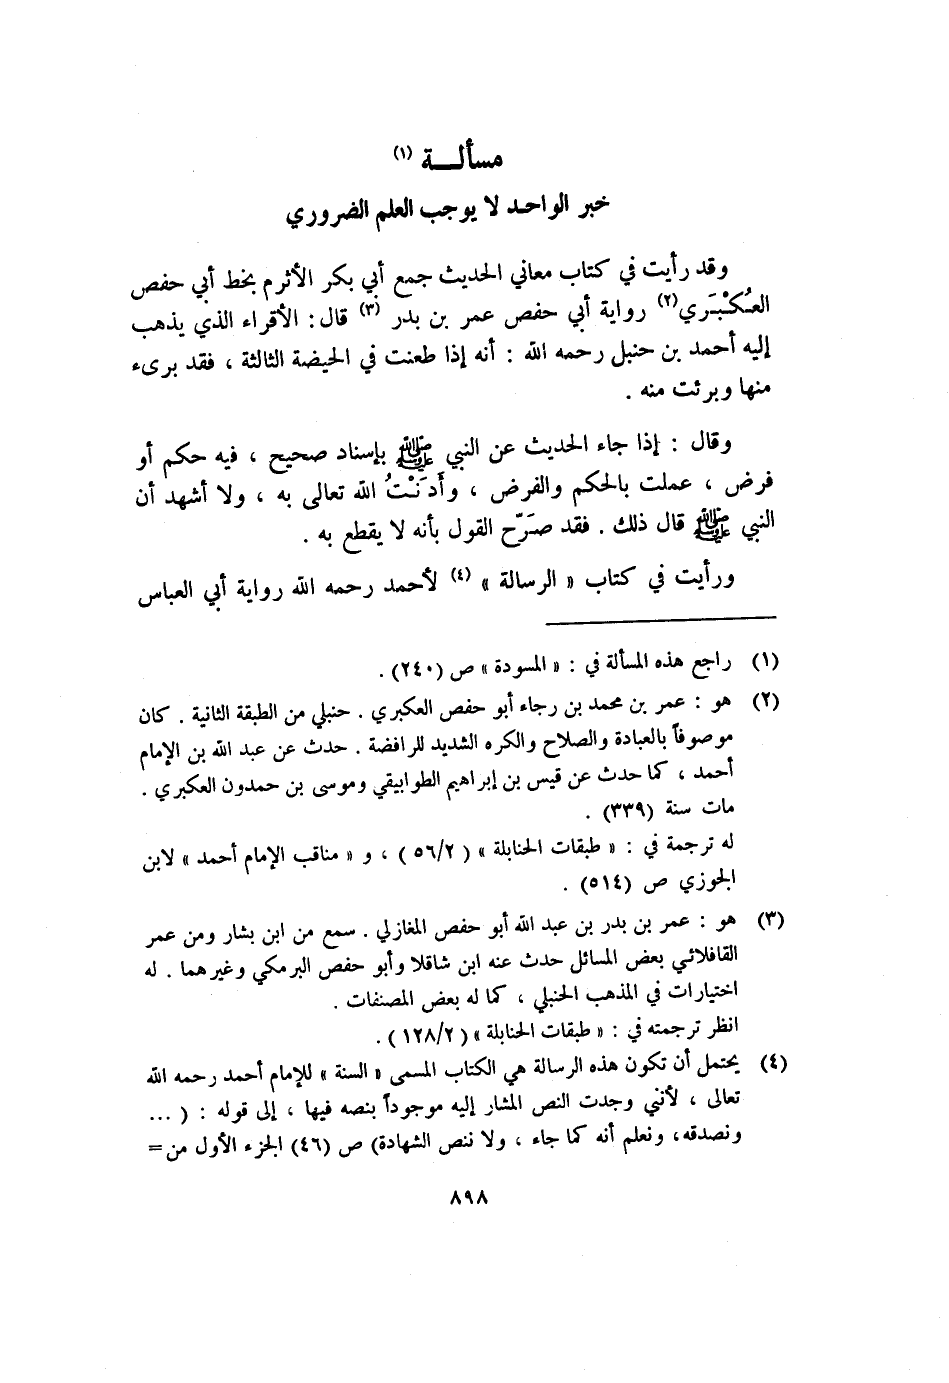 مسألـــة (١)
خبر الواحد لا يوجب العلم الضروري
وقد رأيت في كتاب معاني الحديث جمع أبي بكر الأثرم بخط أبي حفص
العُكْبَري(٢) رواية أبي حفص عمر بن بدر (٣) قال: الأقراء الذي يذهب
إليه أحمد بن حنبل رحمه الله : أنه إذا طعنت في الحيضة الثالثة ، فقد برىء
منها وبرئت منه .
وقال : إذا جاء الحديث عن النبي ﷺ بإسناد صحيح ، فيه حكم أو
فرض ، عملت بالحكم والفرض ، وأَدَنْتُ الله تعالى به ، ولا أشهد أن
النبي ﷺ قال ذلك . فقد صَرّح القول بأنه لا يقطع به .
ورأيت في كتاب « الرسالة » (٤) لأحمد رحمه الله رواية أبي العباس
(١) راجع هذه المسألة في : « المسودة » ص (٢٤٠) .
(٢) هو : عمر بن محمد بن رجاء أبو حفص العكبري . حنبلي من الطبقة الثانية . كان
موصوفاً بالعبادة والصلاح والكره الشديد للرافضة . حدث عن عبد الله بن الإمام
أحمد ، كما حدث عن قيس بن إبراهيم الطوابيقي وموسى بن حمدون العكبري .
مات سنة (٣٣٩) .
له ترجمة في : « طبقات الحنابلة » (٥٦/٢) ، و « مناقب الإمام أحمد » لابن
الجوزي ص (٥١٤) .
(٣) هو : عمر بن بدر بن عبد الله أبو حفص المغازلي . سمع من ابن بشار ومن عمر
القافلائي بعض المسائل حدث عنه ابن شاقلا وأبو حفص البرمكي وغيرهما . له
اختيارات في المذهب الحنبلي ، كما له بعض المصنفات .
انظر ترجمته في : « طبقات الحنابلة » (١٢٨/٢) .
(٤) يحتمل أن تكون هذه الرسالة هي الكتاب المسمى « السنة » للإمام أحمد رحمه الله
تعالى ، لأنني وجدت النص المشار إليه موجوداً بنصه فيها ، إلى قوله : ( ...
ونصدقه، ونعلم أنه كما جاء ، ولا ننص الشهادة) ص (٤٦) الجزء الأول من =
٨٩٨